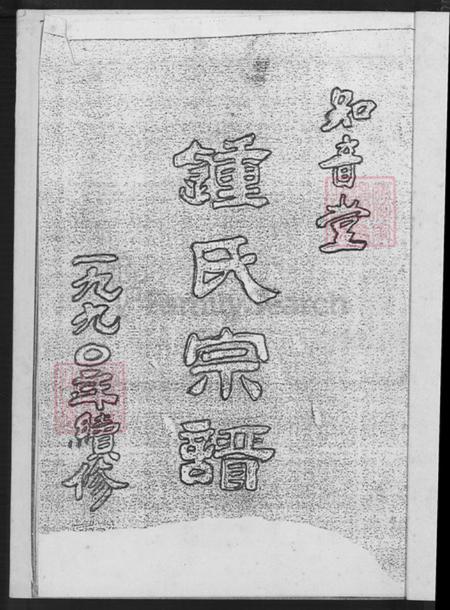 知音堂
鍾氏宗譜
一九九〇年續修